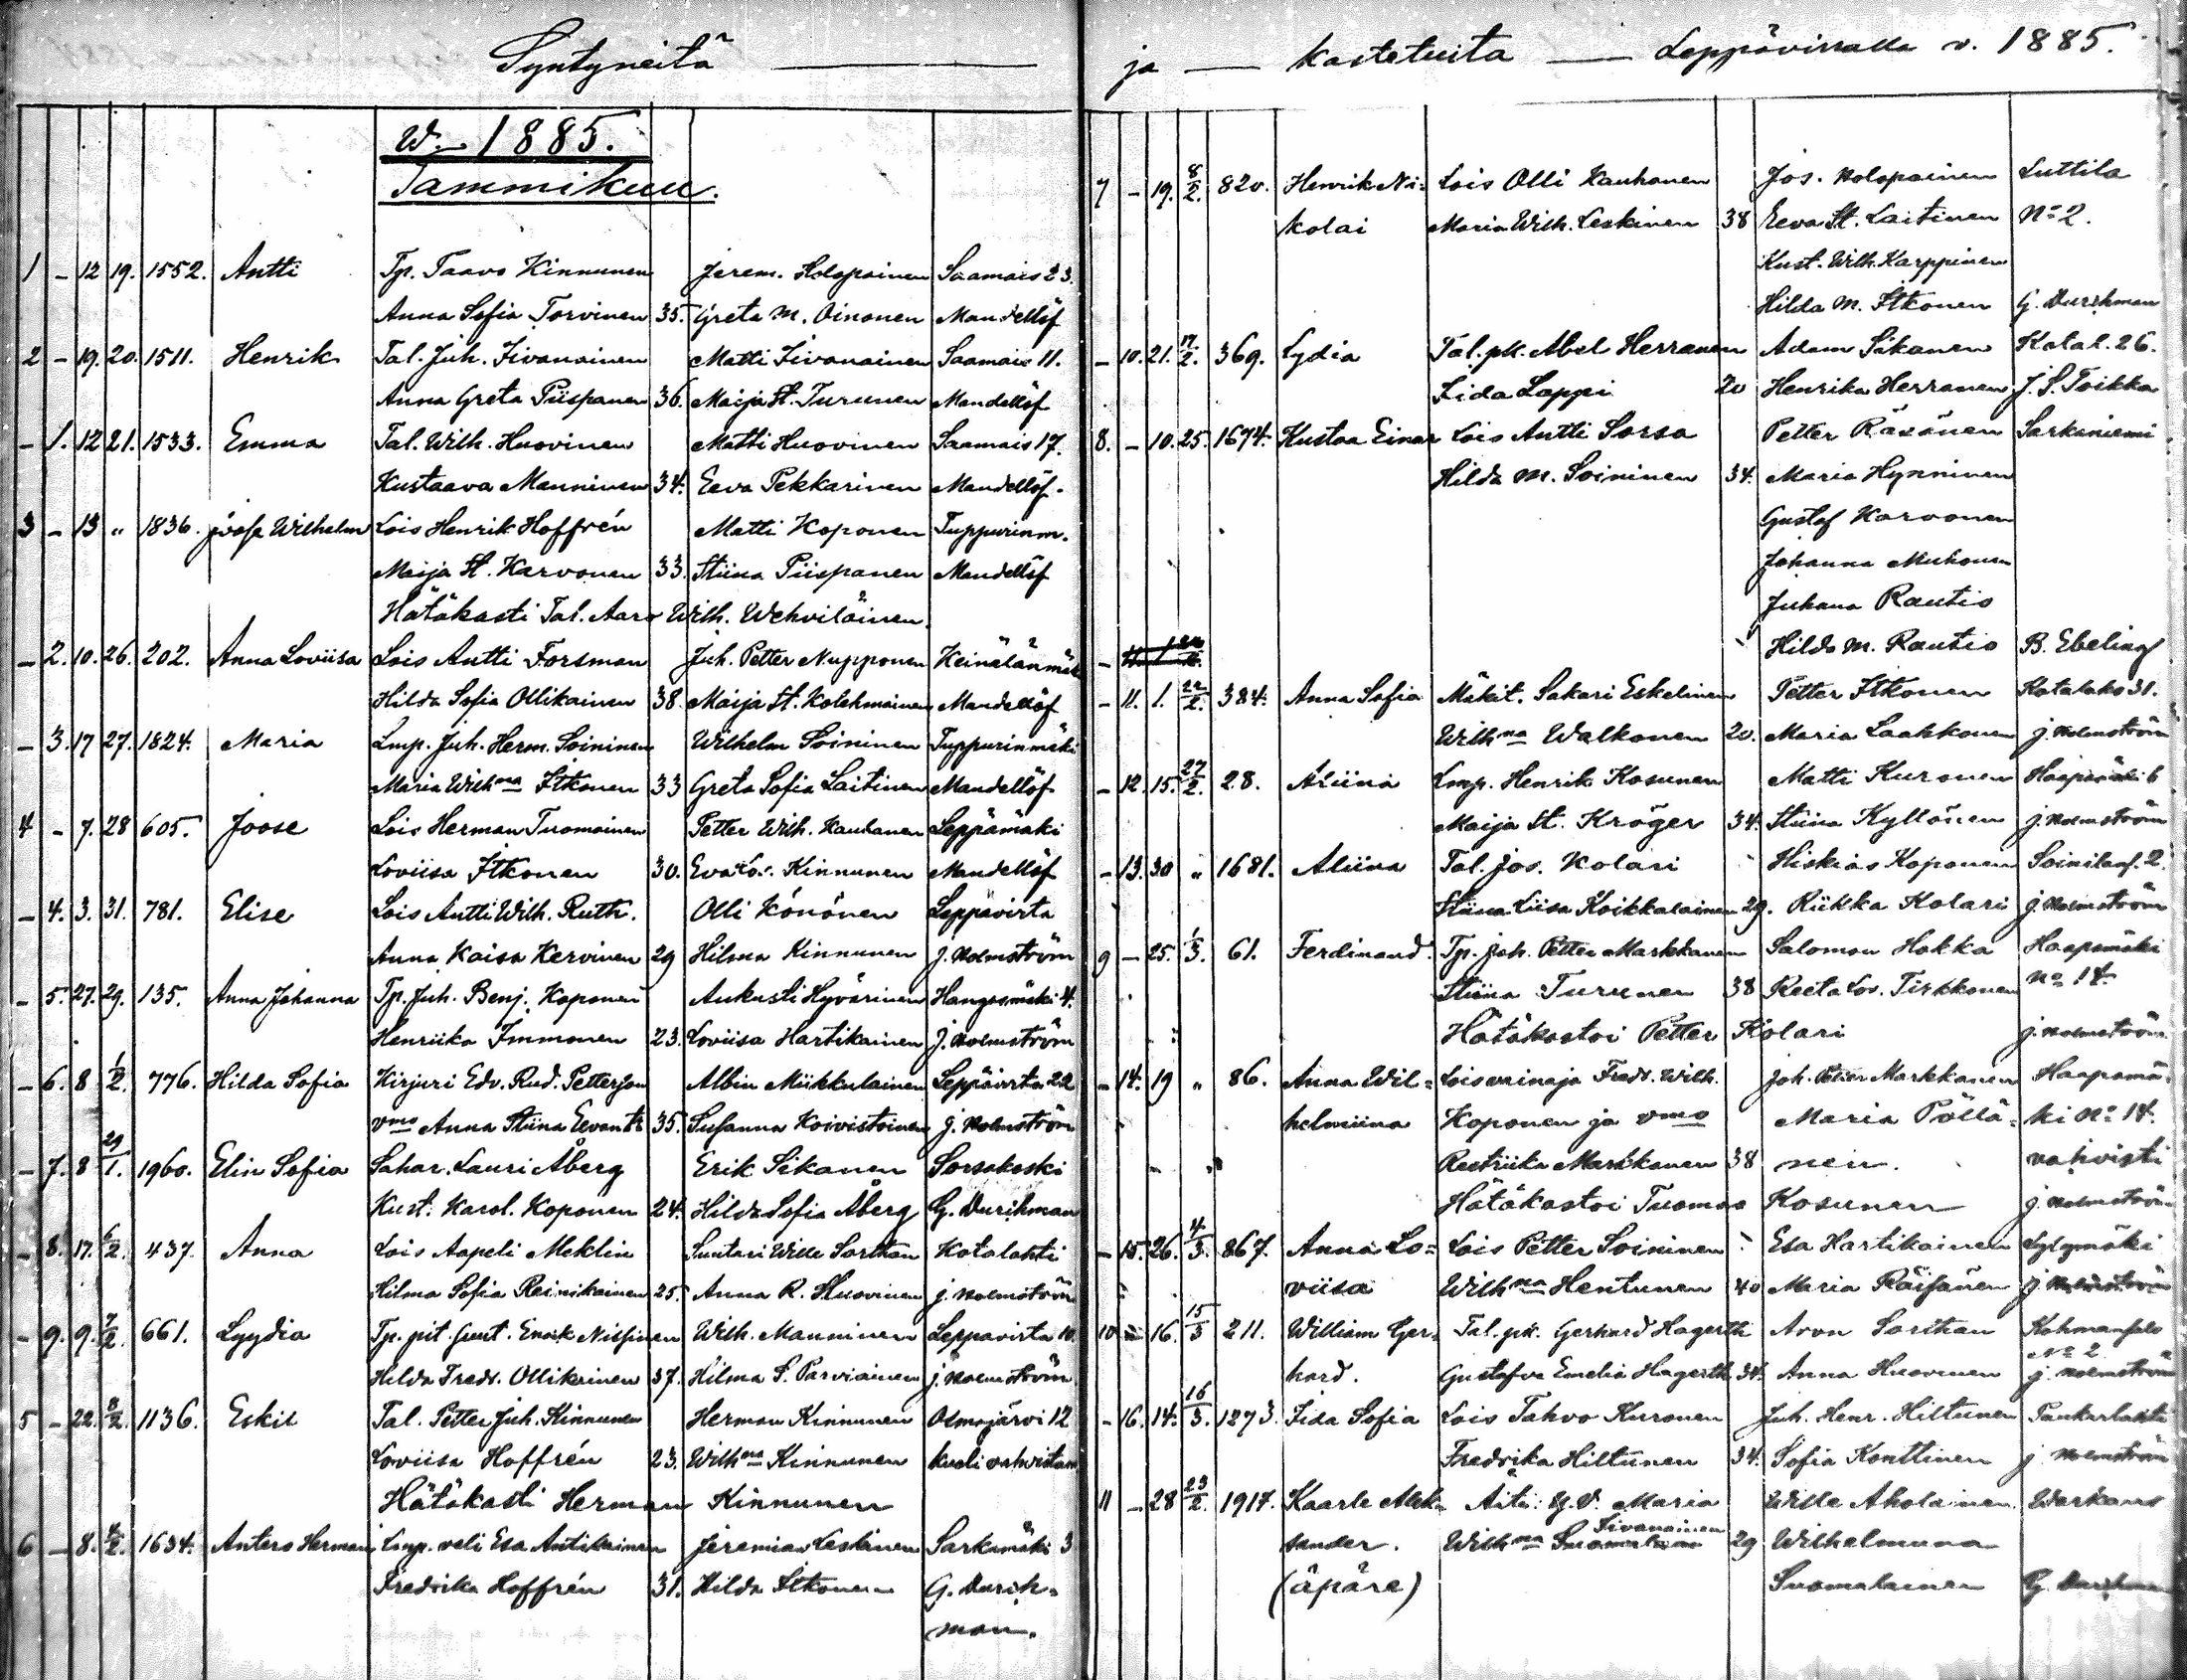 Syntyneitä
W. 1885.
Tammikuu.
1 - 12 19. 1552. Antti Tp. Taavo Kinnunen Jerem. Holopainen Saamais 23.
Anna Sofia Torvinen 35. Greta M. Oinonen Mandellöf
2 - 19. 20. 1511. Henrik Tal. Juh. Iivanainen Matti Iivanainen Saamais 11.
Anna Greta Piispanen 36. Maija St. Turunen Mandellöf
- 1. 12 21. 1533. Emma Tal. Wilh. Huovinen Matti Huovinen Saamais 17.
Kustaava Manninen 34. Eeva Pekkarinen Mandellöf.
3 - 13 " 1836. Joose Wilhelm Lois Henrik Hoffrén Matti Koponen Tuppurinm.
Maija St. Karvonen 33. Stiina Piispanen Mandellöf
Hätäkasti Tal. Aaro Wilh. Wehviläinen.
- 2. 10. 26. 202. Anna Loviisa Lois Antti Forsman Juh. Petter Nupponen Heinälänmäk
Hilda Sofia Ollikainen 38. Maija St. Kolehmainen Mandellöf
- 3. 17 27. 1824. Maria Lmp. Juh. Herm. Soininen Wilhelm Soininen Tuppurinmäki
Maria Wilhna Itkonen 33 Greta Sofia Laitinen Mandellöf
4 - 7. 28 605. Joose Lois Herman Tuomainen Petter Wilh. Kauhanen Leppämäki
Loviisa Itkonen 30. Eva Lo. Kinnunen Mandellöf
- 4. 3. 31. 781. Elise Lois Antti Wilh. Ruth. Olli Könönen Leppävirta
Anna Kaisa Kervinen 29 Hilma Kinnunen J. Holmström
- 5. 27. 29. 135. Anna Johanna Tp. Juh. Benj. Koponen Aukusti Hyvärinen Hangasmäki 4.
Henriika Immonen 23. Loviisa Hartikainen J. Holmström
- 6. 8 1/2. 776. Hilda Sofia Kirjuri Edv. Rud. Petterson Albin Miikkulainen Leppävirta 22
vmo Anna Stiina 35. Susanna Koivistoinen J. Holmström
- 7. 8 29/1. 1960. Elin Sofia Sahar. Lauri Åberg Erik Sikanen Sorsakoski
Kust. Karol. Koponen 24. Hilda Sofia Åberg G. Durchman
- 8. 17. 6/2. 437. Anna Lois Aapeli Meklin Suutari Wille Sarthan Kotalahti
Hilma Sofia Reinikainen 25. Anna R. Huovinen J. Holmström
- 9. 9. 7/2. 661. Lyydia Tp. pit. Enok Nissinen Wilh. Manninen Leppävirta 10.
Hilda Fredr. Ollikainen 37. Hilma S. Parviainen J. Holmström
5 - 22. 8/2. 1136. Eskil Tal. Petter Juh. Kinnunen Herman Kinnunen Osmajärvi 12
Loviisa Hoffrén 23. Wilhna Kinnunen kuoli vahvistam
Hätäkasti Herman Kinnunen
6 - 8. 4/2. 1634. Antero Herman Lmp. veli Esa Antikainen Jeremias Leskinen Sarkamäki 3
Fredrika Hoffrén 31. Hilda Itkonen G. Durch-
man.
ja kastetuita Leppävirralla v. 1885.
7 - 19. 8/2. 820. Henrik Ni- Lois Olli Kauhanen Jos. Holopainen Luttila
kolai Maria Wilh. Leskinen 38 Eeva St. Laitinen No 2.
Kust. Wilh. Karppinen
Hilda M. Itkonen G. Durchman
- 10. 21. 17/2. 369. Lydia Tal. pk. Abel Herranen Adam Sikanen Kotal. 26.
Iida Lappi 20 Henrika Herranen J. S. Toikka
8. - 10. 25. 1674. Kustaa Einar Lois Antti Sorsa Petter Räsänen Sarkaniemi
Hilda M. Soininen 34. Maria Hynninen
Gustaf Karvonen
Johanna Muhonen
Juhana Rautio
Hilda M. Rautio B. Ebeling
- 11. 1. 22/2. 384. Anna Sofia Mäkit. Sakari Eskelinen Petter Itkonen Kotalaks 31.
Wilhna Walkonen 20. Maria Laakkonen J. Holmström
- 12. 15. 27/2. 28. Aliina Lmp. Henrik Kosunen Matti Kuronen Haapamäki 6
Maija St. Kröger 34. Stiina Kyllönen J. Holmström
- 13. 30 " 1681. Aliina Tal. Jos. Kolari Hiskias Koponen 2.
Stiina Liisa Koikkalainen 29. Riikka Kolari J. Holmström
9 - 25. 1/3. 61. Ferdinand. Tp. Joh. Petter Markkanen Salomon Hakka Haapamäki
Stiina Turunen 38 Reeta Lov. Tirkkonen No 14.
Hätäkastoi Petter Kolari J. Holmström
- 14. 19 " 86. Anna Wil- Loisvainaja Fredr. Wilh. Joh. Petter Markkanen Haapamä-
helmiina Koponen ja vmo Maria Pöllä- ki No 14.
Reetriika Markkanen 38 nen. vahvisti
Hätäkastoi Tuomas Kosunen J. Holmström
- 15. 26. 4/3. 867. Anna Lo- Lois Petter Soininen Esa Hartikainen Lylymäki
viisa Wilhna Hentunen 40 Maria Räisänen J. Holmström
10 - 16. 15/3 211. William Ger- Tal. pk. Gerhard Hagerth Aron Sarthan
No 2
hard. Gustafva Emelia Hagerth 34. Anna Huovinen J. Holmström
- 16. 14. 16/3. 1273. Iida Sofia Lois Tahvo Kuronen Juh. Henr. Hiltunen Paukarlahti
Fredrika Hiltunen 34. Sofia Konttinen J. Holmström
11 - 28 23/2. 1917. Kaarle Alek- Äiti: Y.V. Maria Wille Aholainen Warkaus
sander. Wilhna Iivanainen 29 Wilhelmiina
(äpäre) Suomalainen G. Durchman